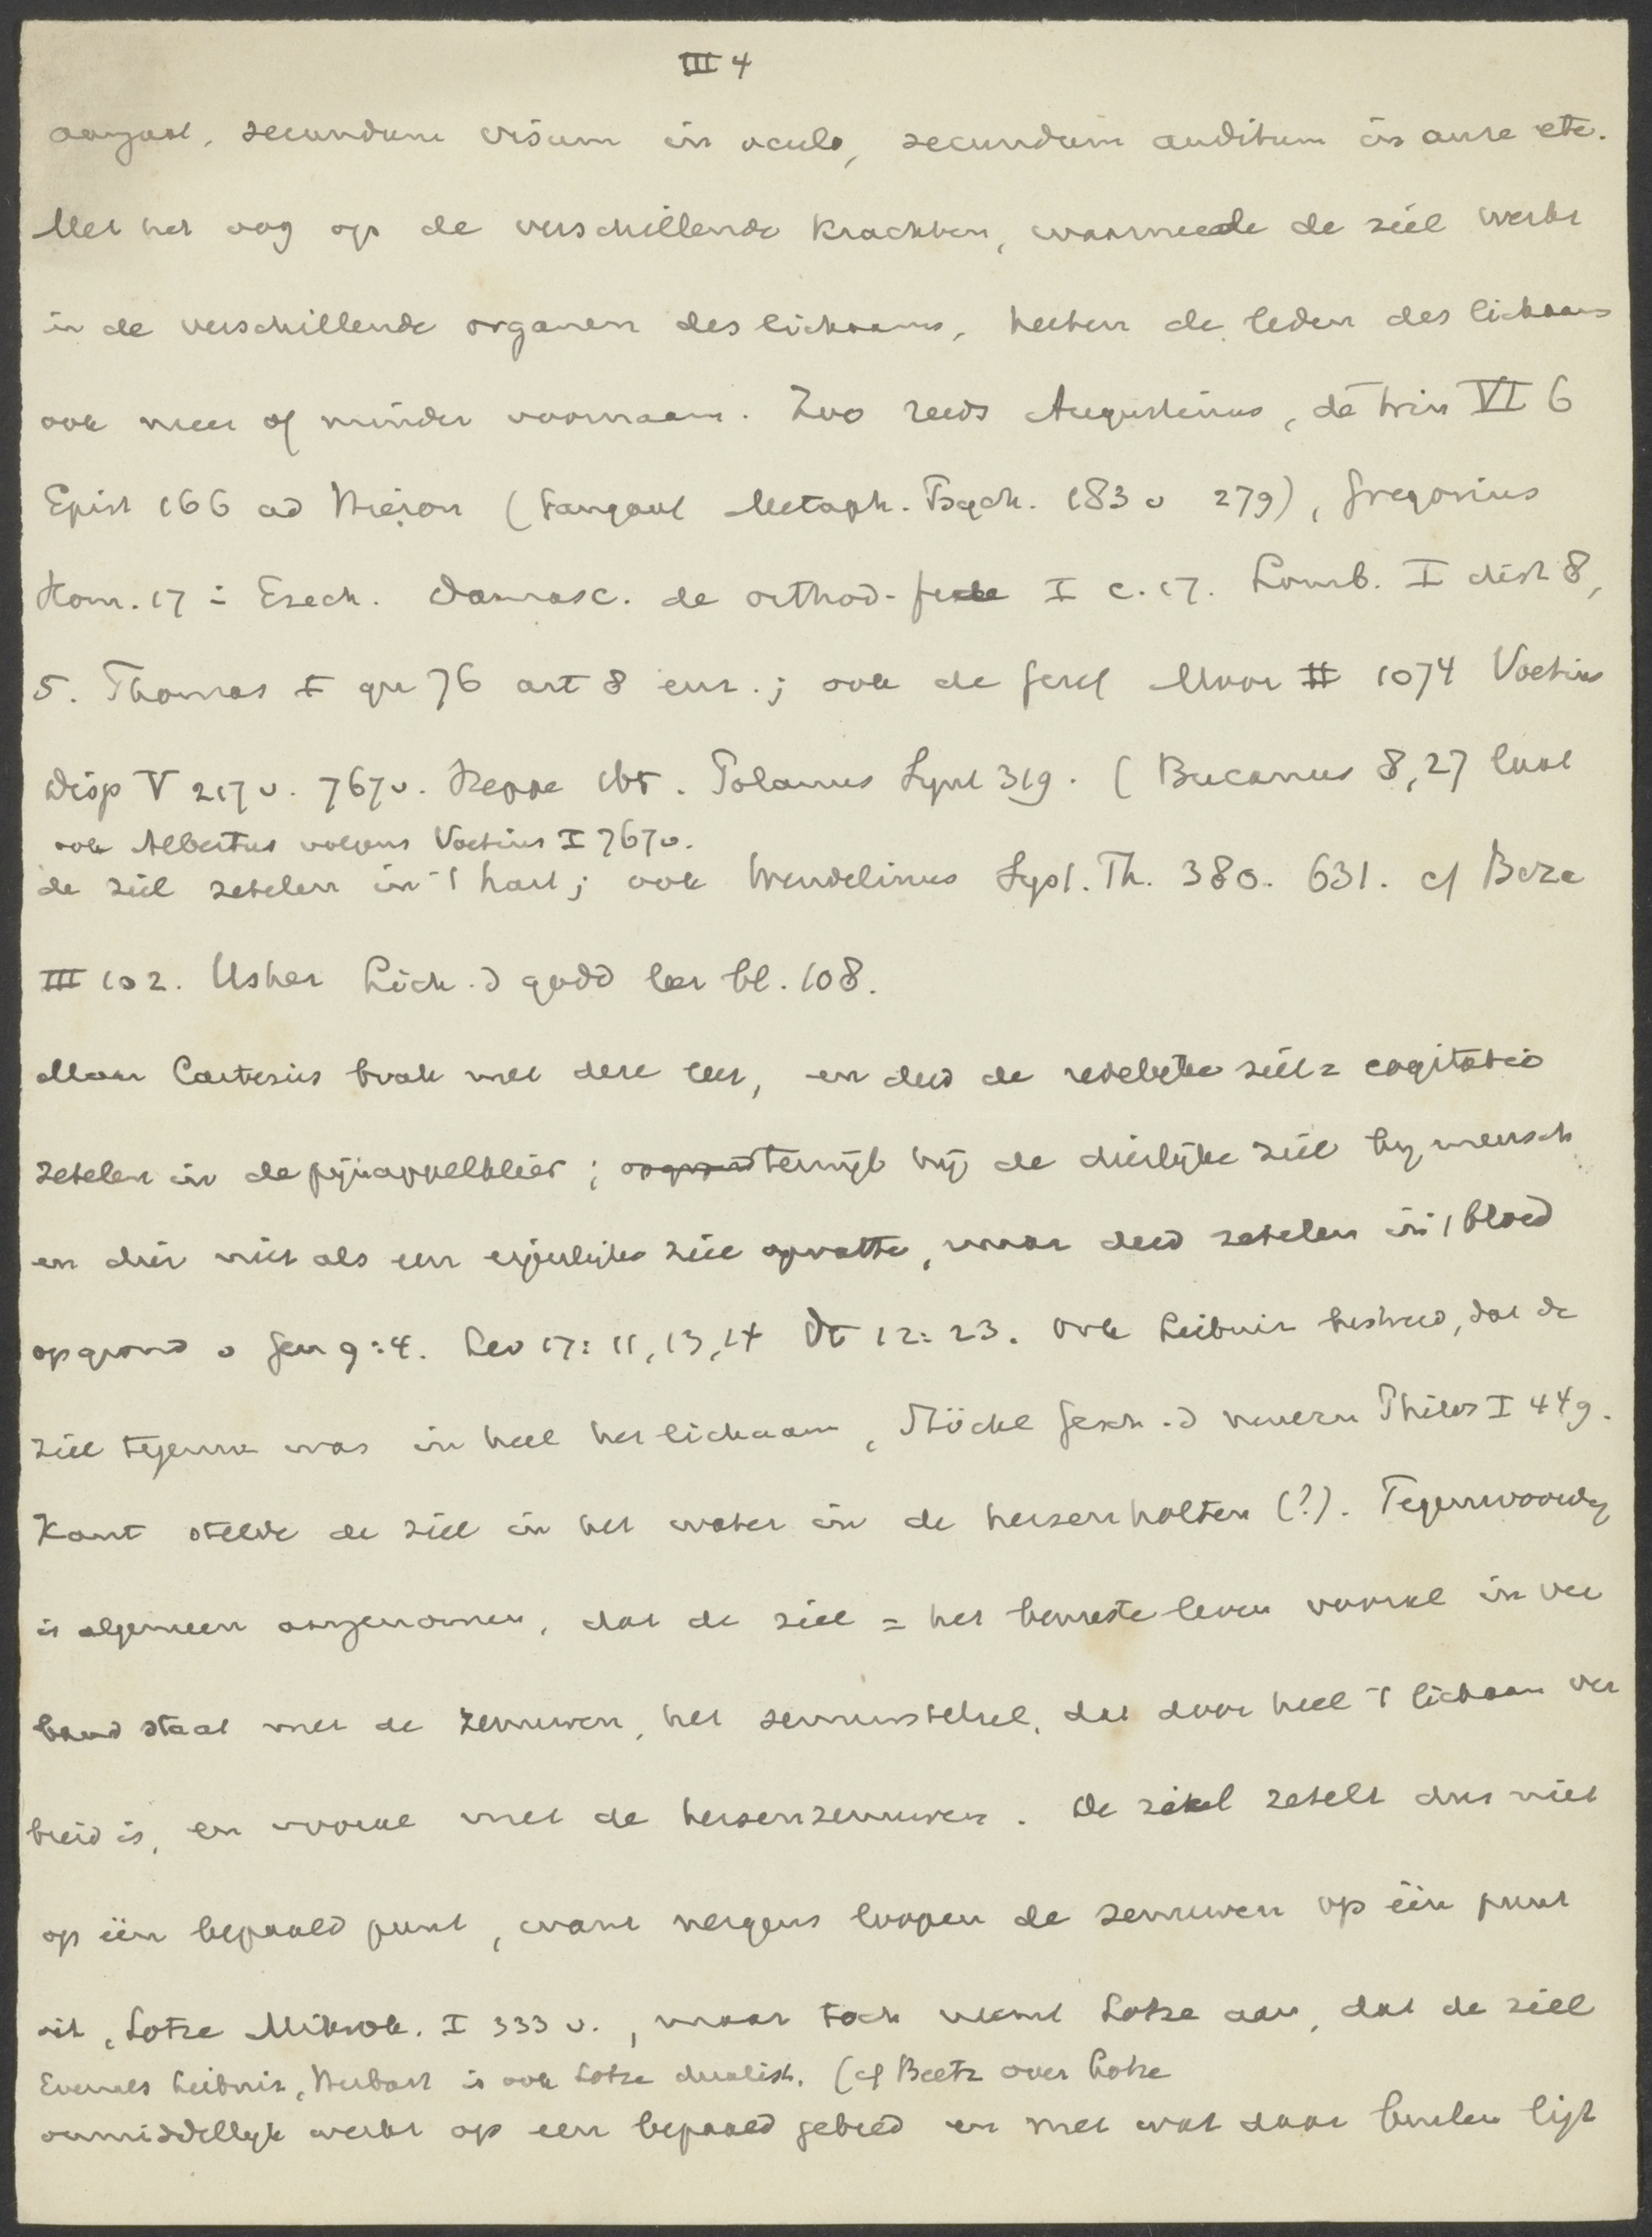 III 4
aangaat, secundum visum in oculo, secundum auditum in aure etc.
Met het oog op de verschillende krachten, waarmede de ziel werkt
in de verschillende organen des lichaams, heeten de leden des lichaams
ook meer of minder voornaam. Zoo reeds Augustinus, de trin VI 6
Epist 166 ad Hieron (Fangaul Metaph. Psych. 183 v 279), Gregorius
Hom. 17 in Ezech. Damasc. de orthod. fide I c. 17. Lomb. I dist 8,
5. Thomas I qu 76 art 8 enz.; ook de Geref Moor II 1074 Voetius
Disp V 217 v. 767 v. Heppe 165. Polanus Synt 319. (Bucanus 8, 27 laat
ook Albertus volgens Voetius I 767 v.
de ziel zetelen in 't hart; ook Wendelinus Syst. Th. 380. 631. cf Beza
III 102. Usher Lich. d godd leer bl. 108.
Maar Cartesius brak met deze leer, en deed de redelijke ziel = cogitatio
zetelen in de pijnappelklier; terwijl hij de dierlijke ziel bij mensch
en dier niet als een eigenlijke ziel opvatte, maar deed zetelen in 't bloed
op grond v Gen 9:4. Lev 17: 11, 13, 14 Dt 12: 23. Ook Leibniz bestreed, dat de
ziel tegenw was in heel het lichaam, Stöckl Gesch. d neuern Philos I 449.
Kant stelde de ziel in het water in de hersenholten (?). Tegenwoordig
is algemeen aangenomen, dat de ziel = het bewuste leven vooral in ver
band staat met de zenuwen, het zenuwstelsel, dat door heel 't lichaam ver
breid is, en vooral met de hersenzenuwen. De ziel zetelt dus niet
op één bepaald punt, want nergens loopen de zenuwen op één punt
uit, Lotze Mikrok. I 333 v., maar toch neemt Lotze aan, dat de ziel
Evenals Leibniz, Herbart is ook Lotze dualist. (cf Beetz over Lotze
onmiddellijk werkt op een bepaald gebied en met wat daar buiten ligt